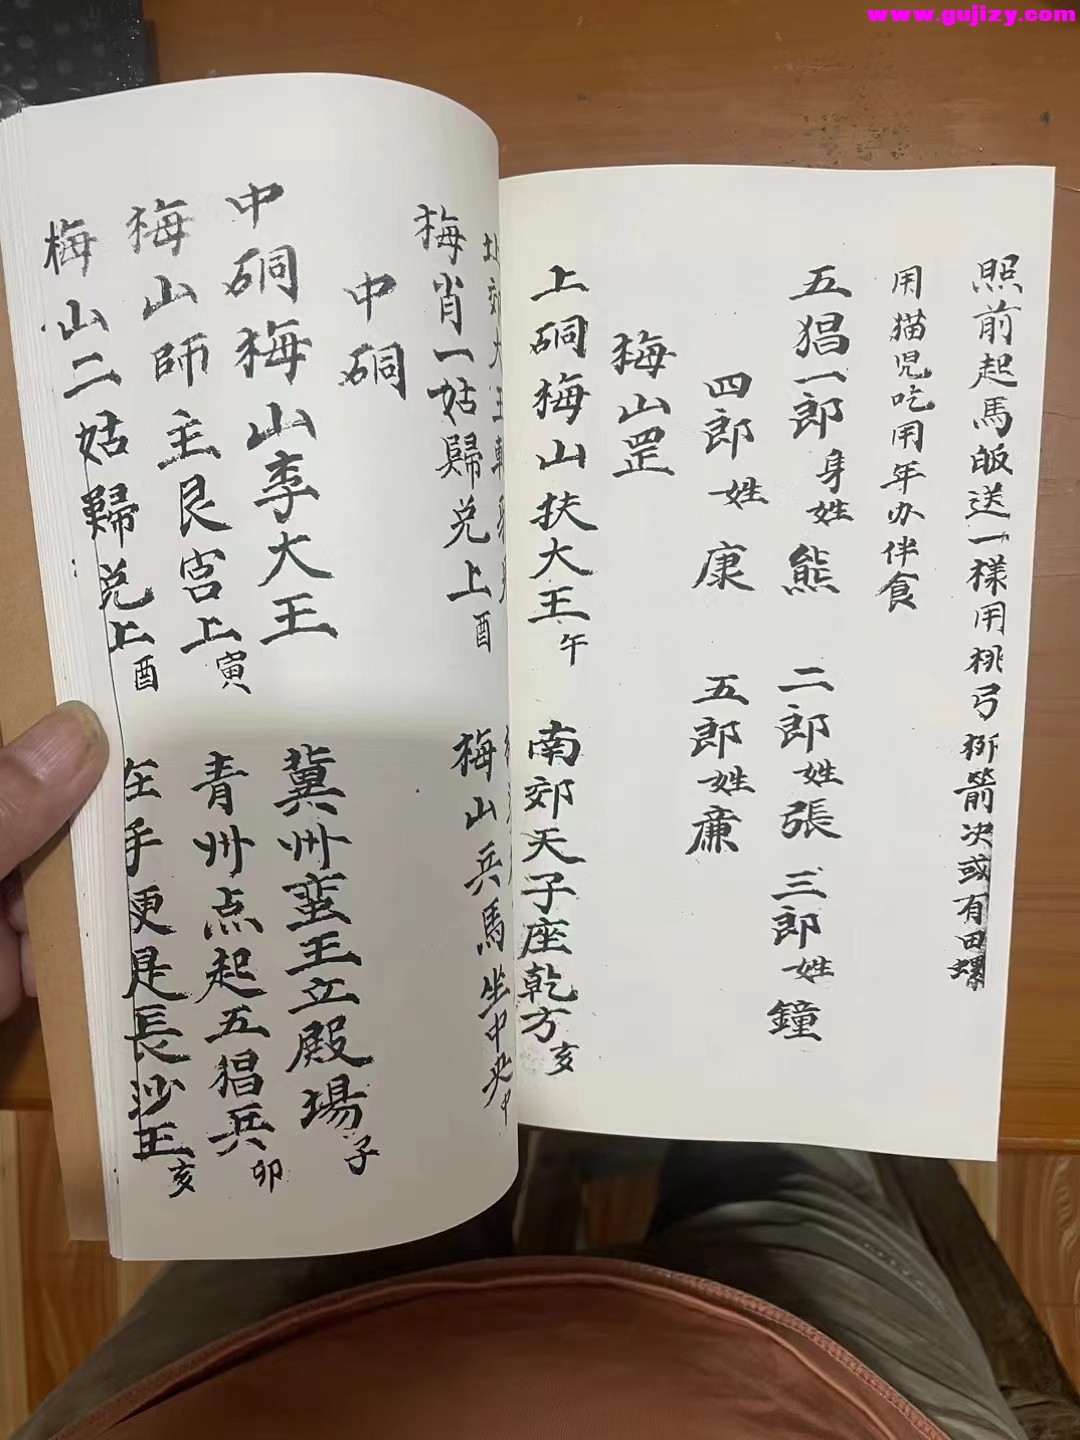 www.gujizy.com
照前起馬皈送一樣用桃弓箭决或有田螺
用猫児吃用年办伴食
五猖一郎身姓熊 二郎姓張 三郎姓鐘
四郎姓康 五郎姓亷
梅山罡
上硐梅山扶大王午 南郊天子座乾方亥
北郊大王
梅肖一姑歸兑上酉 梅山兵馬坐中央中
中硐
中硐梅山李大王 冀州蛮王立殿場子
梅山師主艮宮上寅 青州点起五猖兵卯
梅山二姑歸兑上酉 在手更是長沙王亥